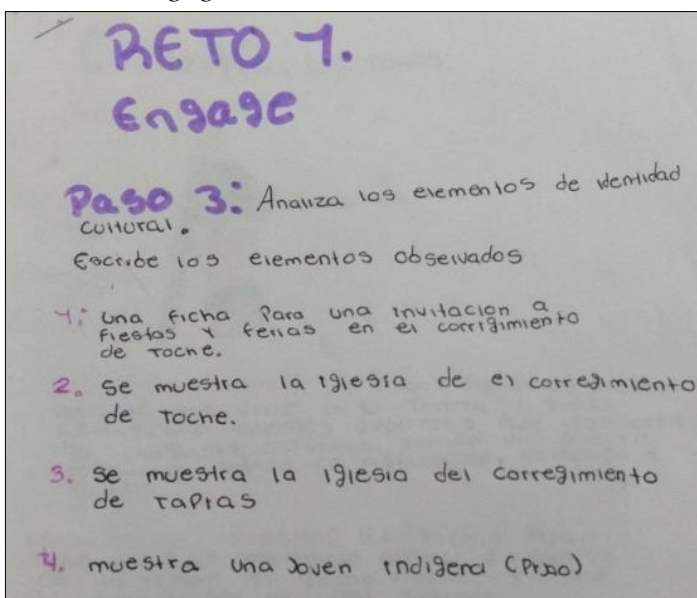 RETO 1.
Engage
Paso 3: Analiza los elementos de identidad
cultural.
Escribe los elementos observados
1. una ficha Para una invitacion a
fiestas y ferias en el corrigimiento
de Toche.
2. Se muestra la iglesia de el corregimiento
de Toche.
3. Se muestra la iglesia del corregimiento
de Tapias
4. muestra una Joven indigena